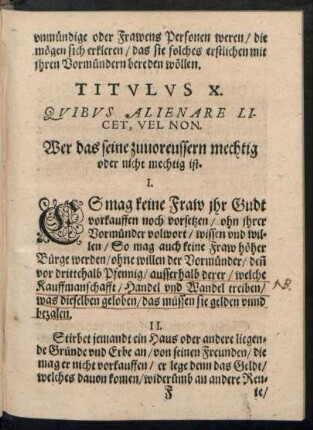 vnmündige oder Frawens Personen weren / die
mögen sich erkleren / das sie solches erstlichen mit
ihren Vormündern bereden wöllen.
TITVLVS X.
QVIBVS ALIENARE LI-
CET, VEL NON.
Wer das seine zuuoreussern mechtig
oder nicht mechtig ist.
I.
ES mag keine Fraw ihr Gudt
vorkauffen noch vorsetzen / ohn ihrer
Vormünder volwort / wissen vnd wil-
len / So mag auch keine Fraw höher
Bürge werden / ohne willen der Vormünder / deñ
vor dritte halb Pfennig / ausserhalb derer / welche
Kauffmanschafft / Handel vnd Wandel treiben / NB.
was dieselben geloben / das müssen sie gelden vnnd
bezalen.
II.
Stirbet jemandt ein Haus oder andere liegen-
de Gründe vnd Erbe an / von seinen Freunden / die
mag er nicht vorkauffen / er lege denn das Geldt /
welches dauon komen / widerümb an andere Ren-
F te /